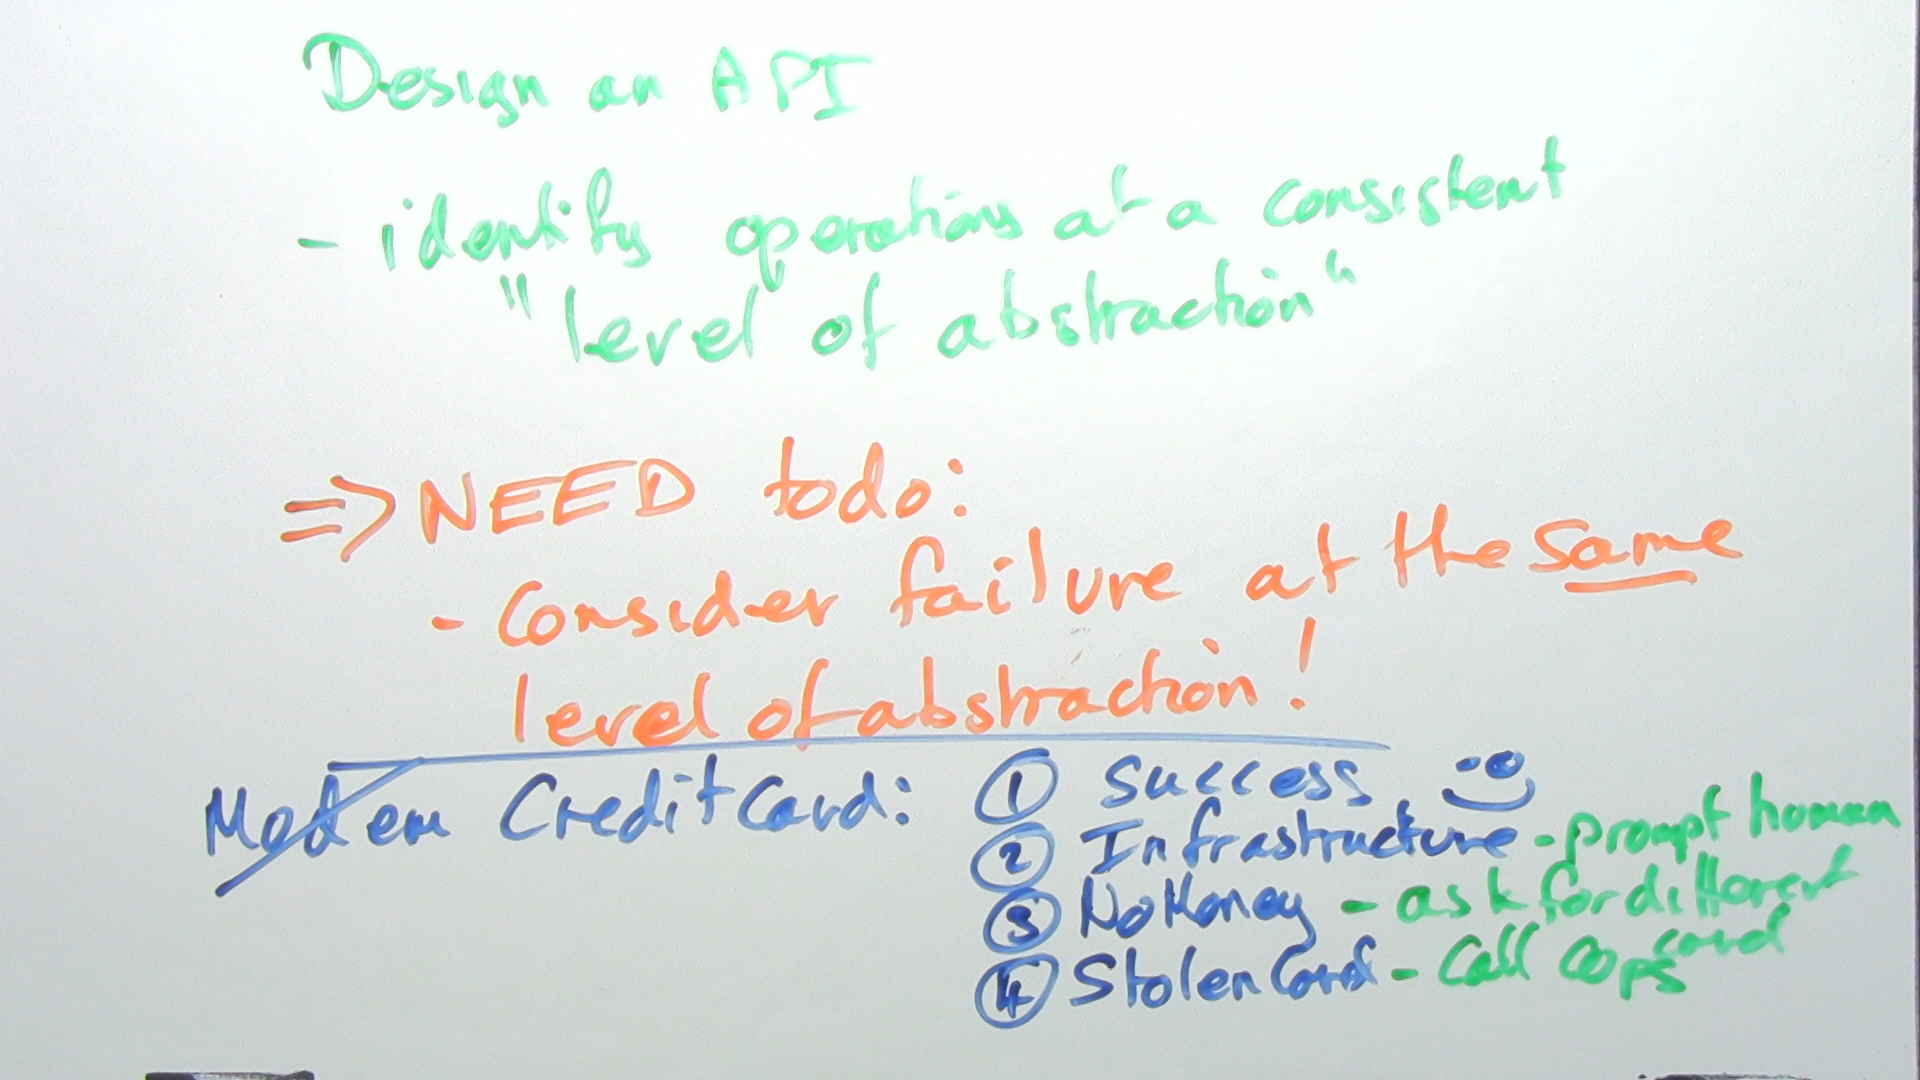 Design an API
- identify operations at a consistent
"level of abstraction"
=> NEED todo:
- Consider failure at the same
level of abstraction!
Modem CreditCard: ① Success
② Infrastructure - prompt human
③ NoMoney - ask for different
card
④ StolenCard - Call cops